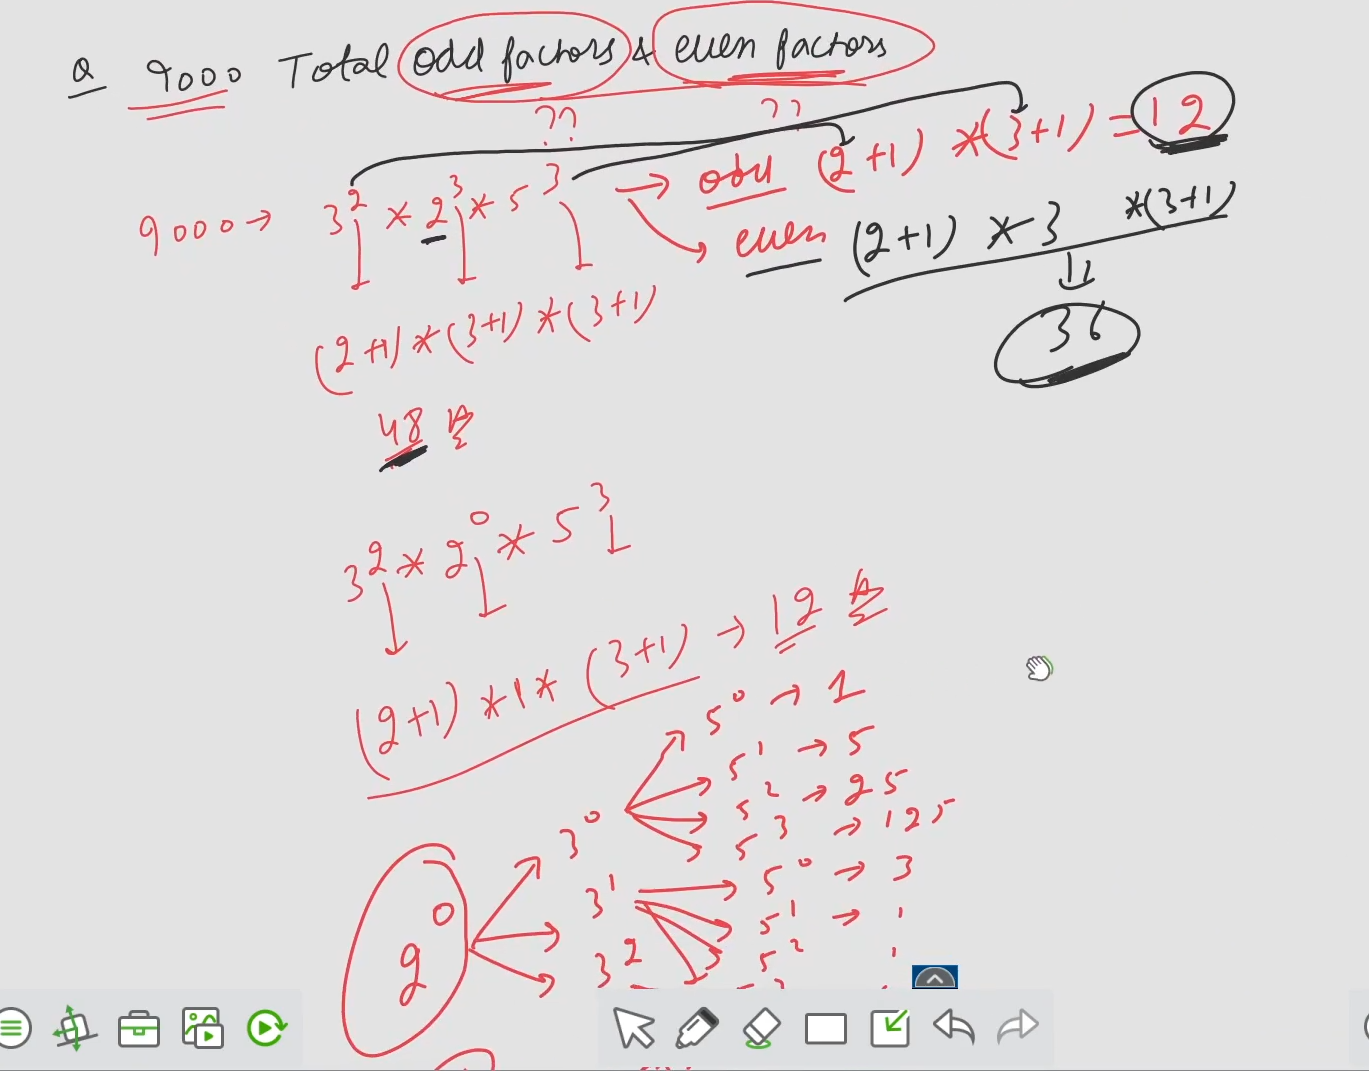 Q 9000 Total odd factors & even factors
?? ??
9000 → 3^2 * 2^3 * 5^3 → odd (2+1) *(3+1) = 12
→ even (2+1) * 3 *(3+1)
36
(2+1)*(3+1)*(3+1)
48
3^2 * 2^0 * 5^3
(2+1) *1* (3+1) → 12
2^0
3^0
5^0 → 1
5^1 → 5
5^2 → 25
5^3 → 125
3^1
5^0 → 3
5^1 →
5^2
3^2